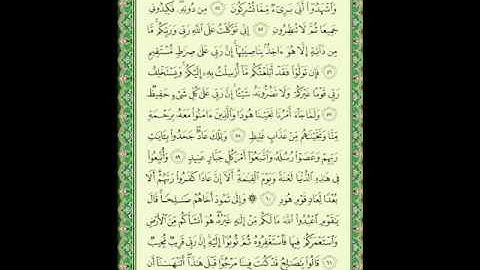 وَٱشْهَدُوٓا۟ أَنِّى بَرِىٓءٌ مِّمَّا تُشْرِكُونَ ٥٤ مِن دُونِهِۦ فَكِيدُونِى
جَمِيعًا ثُمَّ لَا تُنظِرُونِ ٥٥ إِنِّى تَوَكَّلْتُ عَلَى ٱللَّهِ رَبِّى وَرَبِّكُم مَّا
مِن دَآبَّةٍ إِلَّا هُوَ ءَاخِذٌۢ بِنَاصِيَتِهَآ إِنَّ رَبِّى عَلَىٰ صِرَٰطٍ مُّسْتَقِيمٍ
٥٦ فَإِن تَوَلَّوْا۟ فَقَدْ أَبْلَغْتُكُم مَّآ أُرْسِلْتُ بِهِۦٓ إِلَيْكُمْ وَيَسْتَخْلِفُ
رَبِّى قَوْمًا غَيْرَكُمْ وَلَا تَضُرُّونَهُۥ شَيْـًٔا إِنَّ رَبِّى عَلَىٰ كُلِّ شَىْءٍ حَفِيظٌ
٥٧ وَلَمَّا جَآءَ أَمْرُنَا نَجَّيْنَا هُودًا وَٱلَّذِينَ ءَامَنُوا۟ مَعَهُۥ بِرَحْمَةٍ
مِّنَّا وَنَجَّيْنَٰهُم مِّنْ عَذَابٍ غَلِيظٍ ٥٨ وَتِلْكَ عَادٌ جَحَدُوا۟ بِـَٔايَٰتِ
رَبِّهِمْ وَعَصَوْا۟ رُسُلَهُۥ وَٱتَّبَعُوٓا۟ أَمْرَ كُلِّ جَبَّارٍ عَنِيدٍ ٥٩ وَأُتْبِعُوا۟
فِى هَٰذِهِ ٱلدُّنْيَا لَعْنَةً وَيَوْمَ ٱلْقِيَٰمَةِ أَلَآ إِنَّ عَادًا كَفَرُوا۟ رَبَّهُمْ أَلَا
بُعْدًا لِّعَادٍ قَوْمِ هُودٍ ٦٠ ۞ وَإِلَىٰ ثَمُودَ أَخَاهُمْ صَٰلِحًا قَالَ
يَٰقَوْمِ ٱعْبُدُوا۟ ٱللَّهَ مَا لَكُم مِّنْ إِلَٰهٍ غَيْرُهُۥ هُوَ أَنشَأَكُم مِّنَ ٱلْأَرْضِ
وَٱسْتَعْمَرَكُمْ فِيهَا فَٱسْتَغْفِرُوهُ ثُمَّ تُوبُوٓا۟ إِلَيْهِ إِنَّ رَبِّى قَرِيبٌ مُّجِيبٌ
٦١ قَالُوا۟ يَٰصَٰلِحُ قَدْ كُنتَ فِينَا مَرْجُوًّا قَبْلَ هَٰذَآ أَتَنْهَىٰنَآ أَن